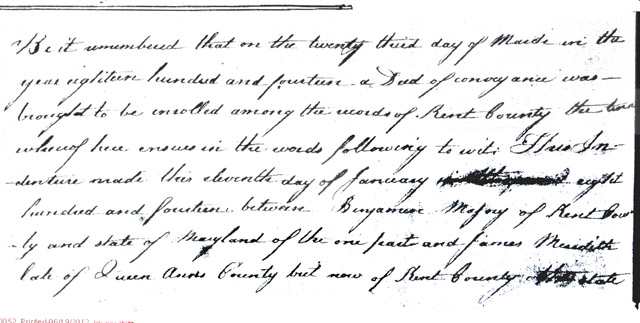 Be it remembered that on the twenty third day of March in the
year eighteen hundred and fourteen a Deed of conveyance was –
brought to be enrolled among the records of Kent County the tenor
whereof here ensues in the words following to wit; This In-
-denture made this eleventh day of January eight
hundred and fourteen between Benjamin of Kent Coun
-ty and state of Maryland of the one part and James Meredith
late of Queen Anns County but now of Kent County state
0952, Printed 06/19/2012.